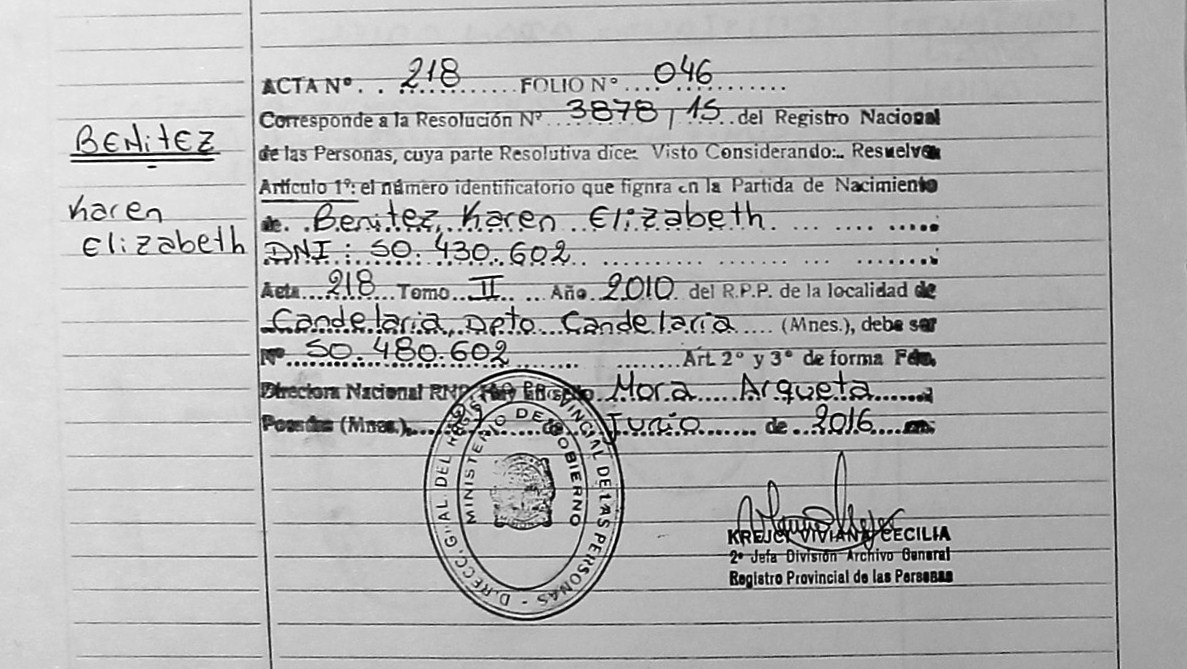 ACTA Nº 218 FOLIO Nº 046
Corresponde a la Resolución Nº 3878 / 15 del Registro Nacional
BENitEZ
de las Personas, cuya parte Resolutiva dice: Visto Considerando: Resuelve:
Artículo 1º: el número identificatorio que fignra en la Partida de Nacimiento
Karen
de Benitez, Karen Elizabeth
Elizabeth
DNI: 50.430.602
Acta 218 Tomo II Año 2010 del R.P.P. de la localidad de
Candelaria, Dpto Candelaria (Mnes.), debe ser
Nº 50.480.602 Art. 2º y 3º de forma Fdo.
Directora Nacional RNP Mora Argueta
Posadas (Mnes.), de Junio de 2016
DIRECC. GRAL. DEL REGIST. PROVINCIAL DE LAS PERSONAS
MINISTERIO DE GOBIERNO
KREJCI VIVIANA CECILIA
2º Jefa División Archivo General
Registro Provincial de las Personas